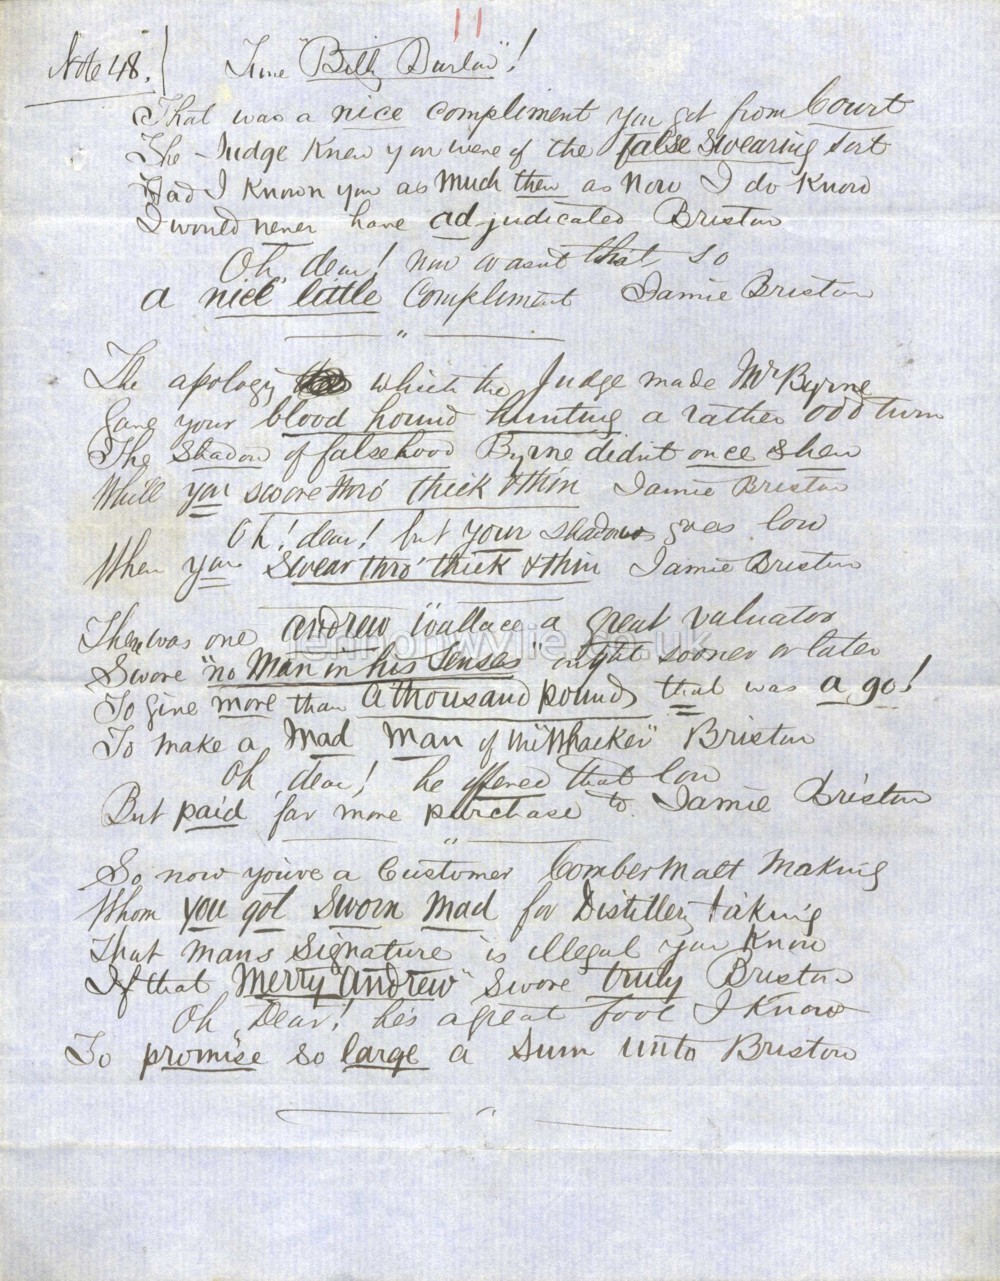 11
Note 48. } Tune "Billy Barlow"!
That was a nice compliment you got from Court
The Judge knew you were of the false swearing sort
Had I known you as much then as now I do know
I would never have adjudicated Briston
Oh, dear! now wasn't that so
a nice little compliment Jamie Briston
"
The apology which the Judge made Mr Byrne
Gave your blood hound hunting a rather odd turn
The shadow of falsehood Byrne didn't once shew
While you swore thro' thick & thin Jamie Briston
Oh! dear! but your shadows grew low
When you swear thro' thick & thin Jamie Briston
There was one andrew Wallace a great valuator
Swore "no Man in his senses" ought sooner or later
To give more than a thousand pounds that was a go!
To make a Mad Man of the "Whacker" Briston
Oh, dear! he offered that low
But paid far more purchase to Jamie Briston
"
So now you've a Customer Comber Malt Making
Whom you got sworn mad for Distillery taking
That mans signature is illegal you know
If that "Merry andrew" swore truly Briston
Oh, Dear! he's a great fool I know
To promise so large a sum unto Briston
lennonwylie.co.uk